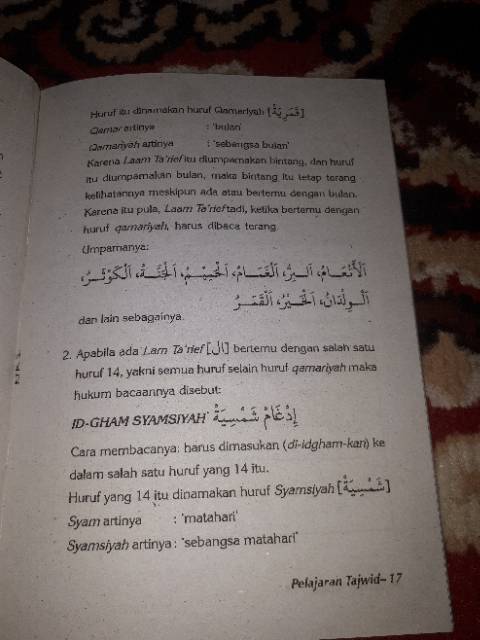 Huruf itu dinamakan huruf Qamariyah [قَمَرِيَةْ]
Qamar artinya : 'bulan'
Qamariyah artinya : 'sebangsa bulan'
Karena Laam Ta'rief itu diumpamakan bintang, dan huruf
itu diumpamakan bulan, maka bintang itu tetap terang
kelihatannya meskipun ada atau bertemu dengan bulan.
Karena itu pula, Laam Ta'rief tadi, ketika bertemu dengan
huruf qamariyah, harus dibaca terang.
Umpamanya:
اَلْأَنْعَـامُ، اَلْـبِرُّ، اَلْغَمَـامُ، اَلْحَمِيْـمُ، اَلْجَنَّـةُ، اَلْكَوْثَـرُ،
اَلْـوِلْدَانُ، اَلْخَـيْرُ، اَلْقَمَـرُ
dan lain sebagainya.
2. Apabila ada Lam Ta'rief [ال] bertemu dengan salah satu
huruf 14, yakni semua huruf selain huruf qamariyah maka
hukum bacaannya disebut:
ID-GHAM SYAMSIYAH إِدْغَامْ شَمْسِيَةْ
Cara membacanya: harus dimasukan (di-idgham-kan) ke
dalam salah satu huruf yang 14 itu.
Huruf yang 14 itu dinamakan huruf Syamsiyah [شَمْسِيَةْ]
Syam artinya : 'matahari'
Syamsiyah artinya : 'sebangsa matahari'
Pelajaran Tajwid– 17